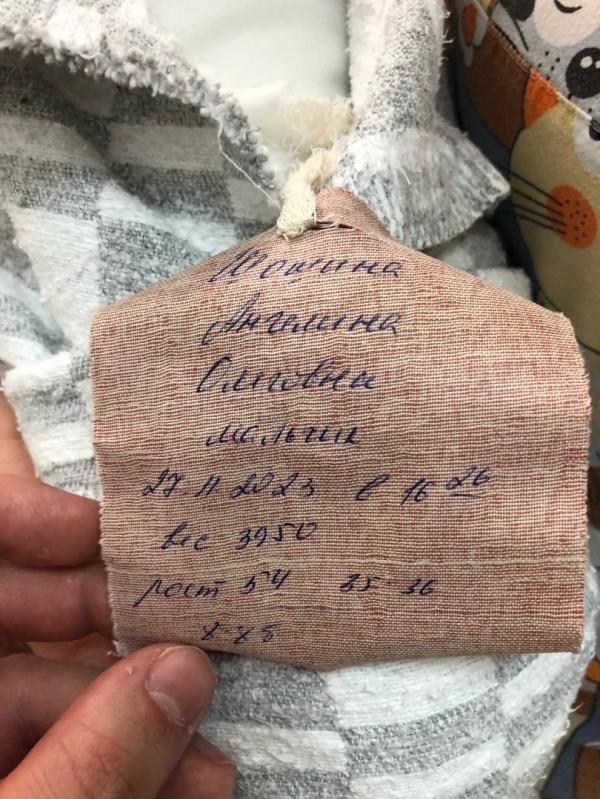 Ангелина
Олеговна
мальчик
27.11.2023 в 16 26
вес 3950
рост 54 35-36